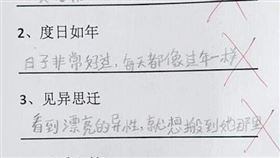 2、度日如年
日子非常好过，每天都像过年一样
3、见异思迁
看到漂亮的异性，就想搬到她那里